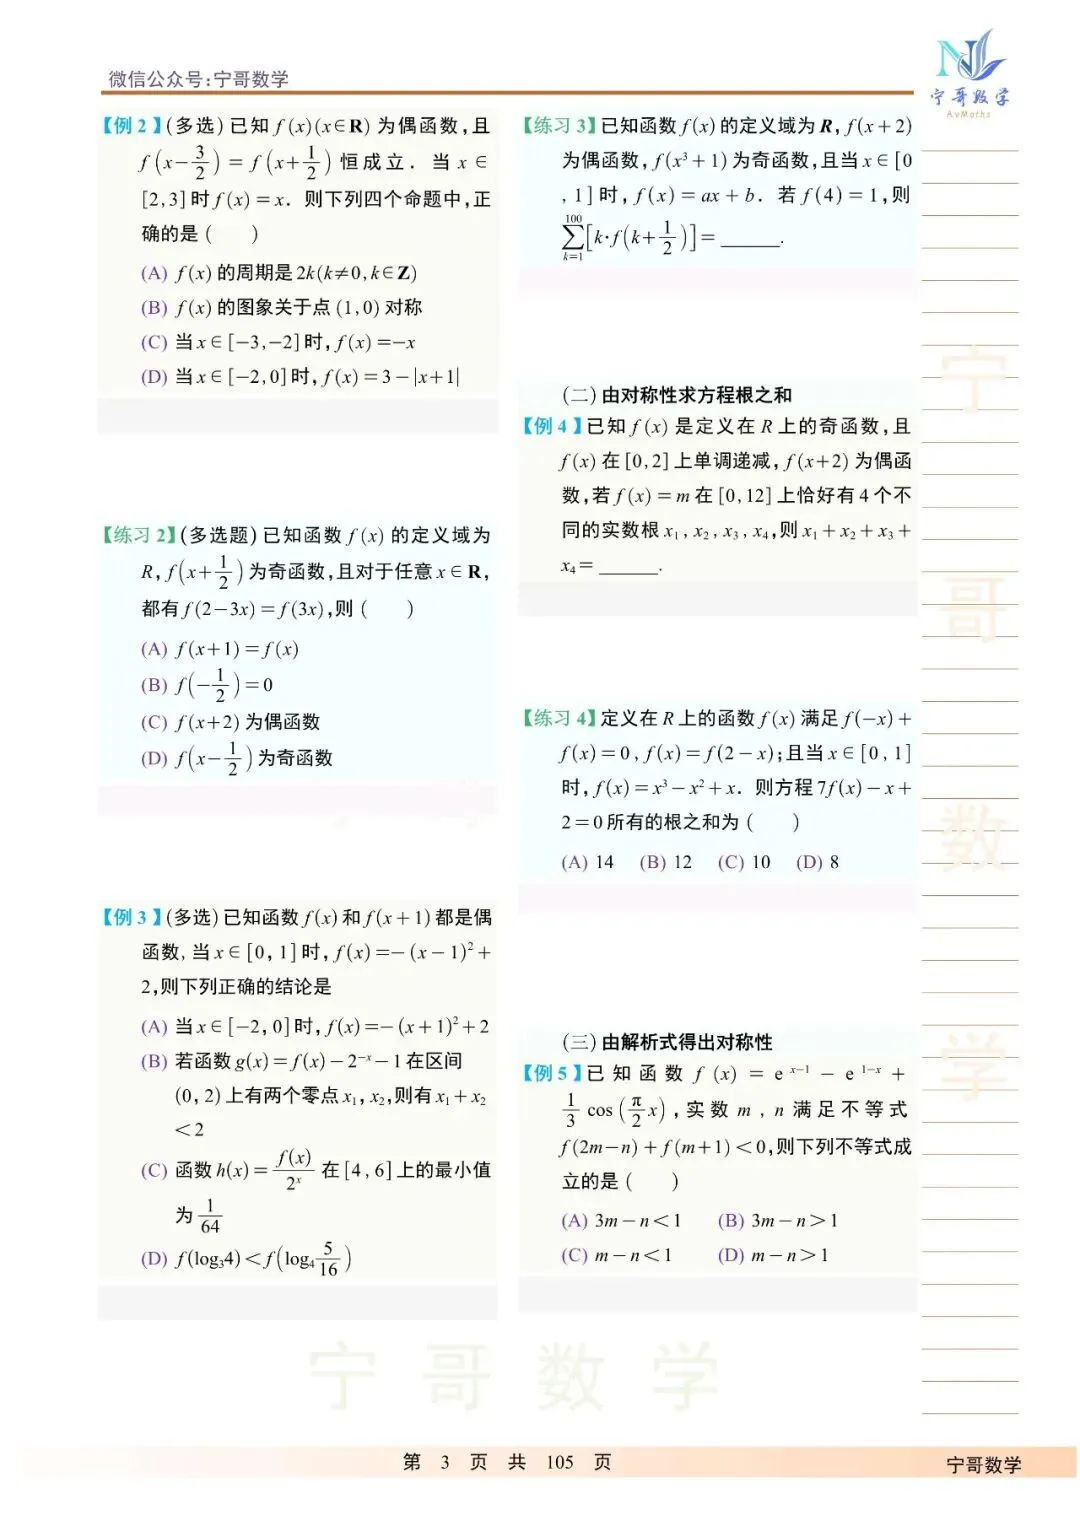 微信公众号:宁哥数学
宁哥数学
AvMaths
【例 2】(多选) 已知 f(x)(x∈R) 为偶函数,且
f(x−3/2) = f(x+1/2) 恒成立. 当 x∈
[2,3] 时 f(x) = x. 则下列四个命题中,正
确的是 (  )
(A) f(x) 的周期是 2k(k≠0, k∈Z)
(B) f(x) 的图象关于点 (1,0) 对称
(C) 当 x∈[−3,−2] 时, f(x) = −x
(D) 当 x∈[−2,0] 时, f(x) = 3−|x+1|
【练习 2】(多选题) 已知函数 f(x) 的定义域为
R, f(x+1/2) 为奇函数,且对于任意 x∈R,
都有 f(2−3x) = f(3x),则 (  )
(A) f(x+1) = f(x)
(B) f(−1/2) = 0
(C) f(x+2) 为偶函数
(D) f(x−1/2) 为奇函数
【例 3】(多选) 已知函数 f(x) 和 f(x+1) 都是偶
函数, 当 x∈[0, 1] 时, f(x) = −(x−1)²+
2,则下列正确的结论是
(A) 当 x∈[−2, 0] 时, f(x) = −(x+1)²+2
(B) 若函数 g(x) = f(x)−2⁻ˣ−1 在区间
(0, 2) 上有两个零点 x₁, x₂,则有 x₁+x₂
<2
(C) 函数 h(x) = f(x)/2ˣ 在 [4, 6] 上的最小值
为 1/64
(D) f(log₃4) < f(log₄ 5/16)
【练习 3】已知函数 f(x) 的定义域为 R, f(x+2)
为偶函数, f(x³+1) 为奇函数,且当 x∈[0
, 1] 时, f(x) = ax+b. 若 f(4) = 1,则
∑_{k=1}^{100}[k·f(k+1/2)] = ______.
(二) 由对称性求方程根之和
【例 4】已知 f(x) 是定义在 R 上的奇函数,且
f(x) 在 [0,2] 上单调递减, f(x+2) 为偶函
数,若 f(x) = m 在 [0,12] 上恰好有 4 个不
同的实数根 x₁, x₂, x₃, x₄,则 x₁+x₂+x₃+
x₄ = ______.
【练习 4】定义在 R 上的函数 f(x) 满足 f(−x)+
f(x) = 0, f(x) = f(2−x);且当 x∈[0, 1]
时, f(x) = x³−x²+x. 则方程 7f(x)−x+
2 = 0 所有的根之和为 (  )
(A) 14 (B) 12 (C) 10 (D) 8
(三) 由解析式得出对称性
【例 5】已知函数 f(x) = e^{x−1} − e^{1−x} +
1/3 cos(π/2 x),实数 m, n 满足不等式
f(2m−n)+f(m+1)<0,则下列不等式成
立的是 (  )
(A) 3m−n<1 (B) 3m−n>1
(C) m−n<1 (D) m−n>1
宁哥数学
宁哥数学
第 3 页 共 105 页
宁哥数学